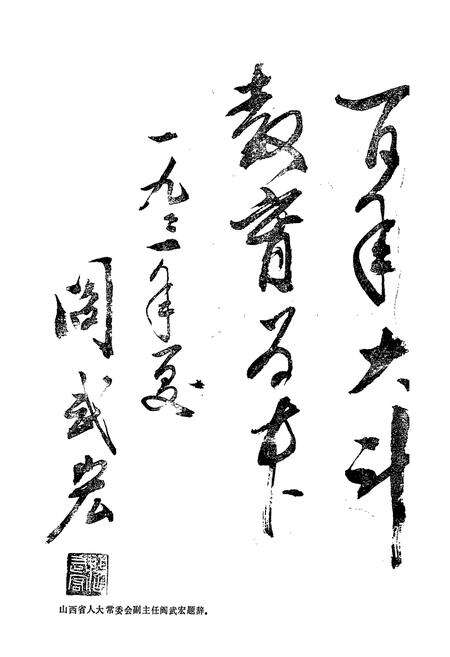 百年大计
教育为本
一九三年夏
阎武宏
山西省人大常委会副主任阎武宏题辞。